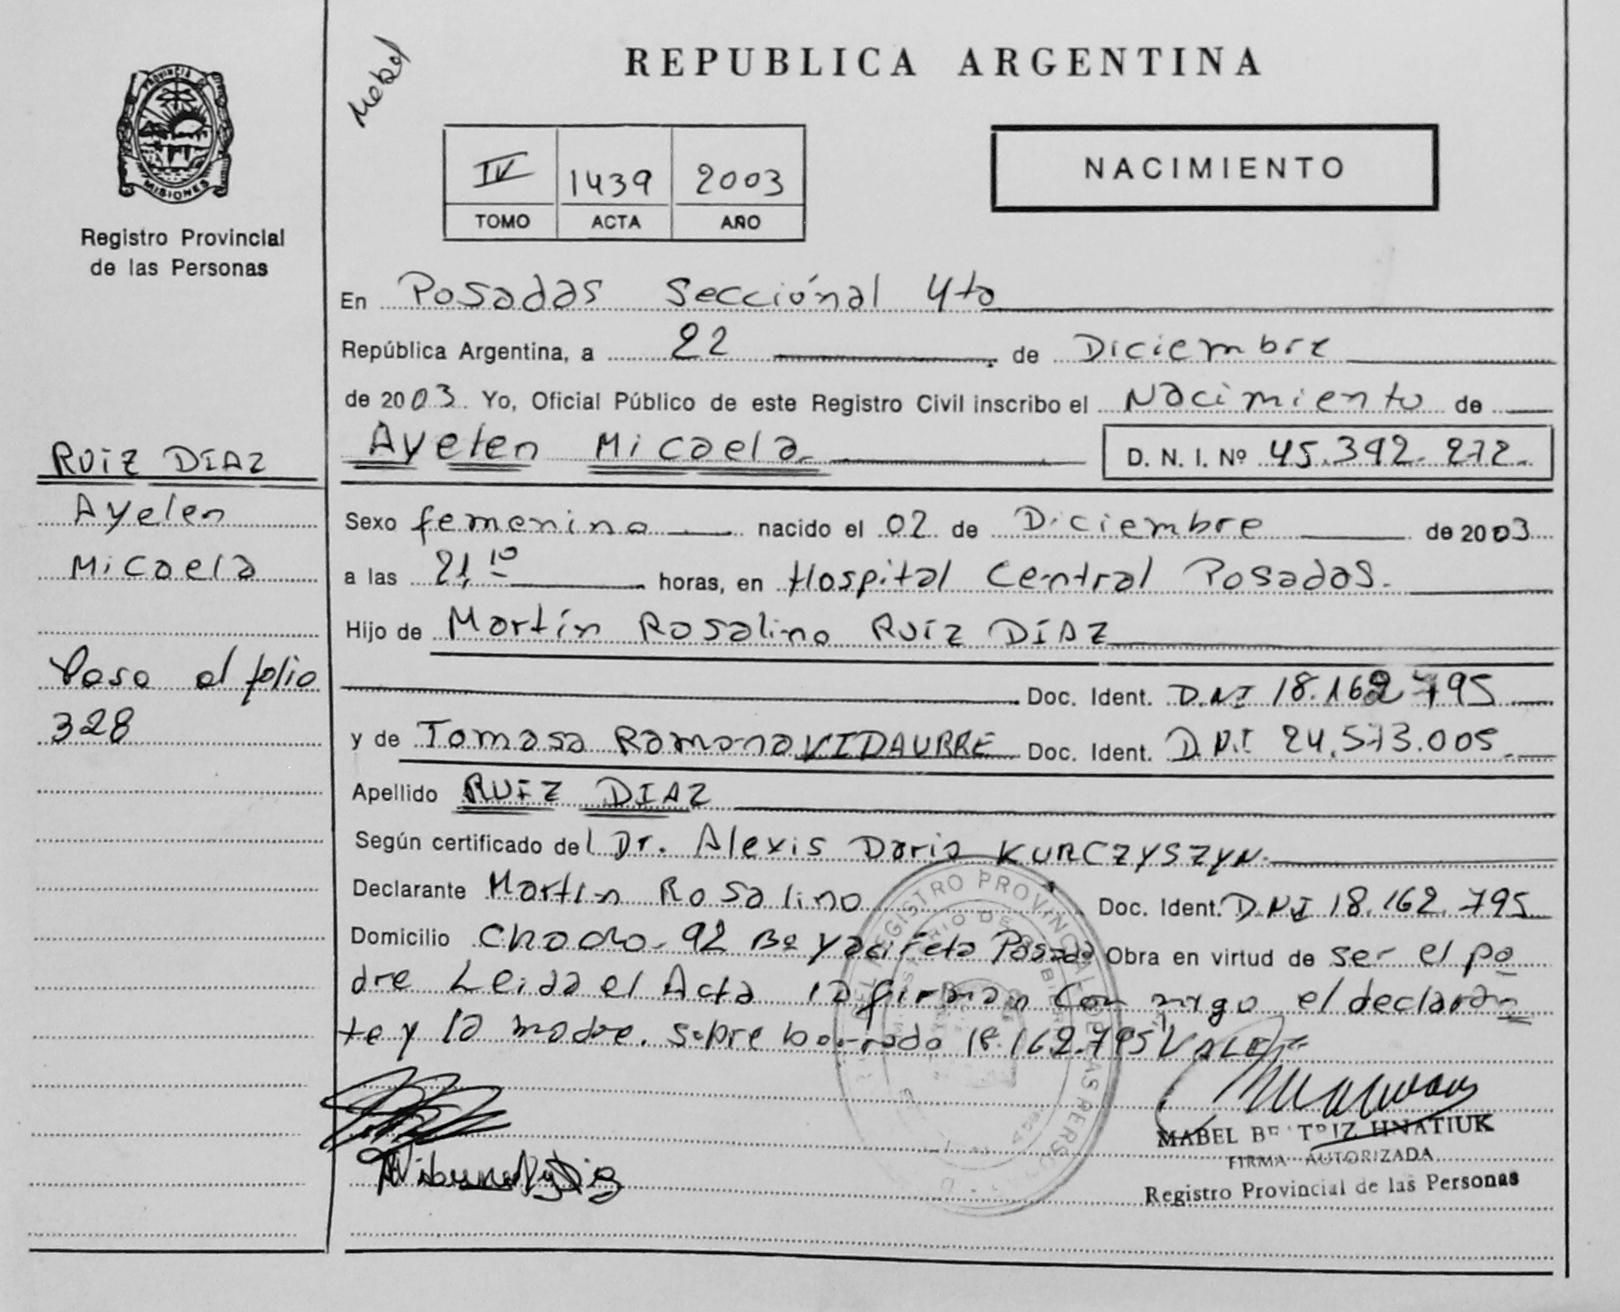 PROVINCIA DE
MISIONES
Registro Provincial
de las Personas
Mabel
REPUBLICA ARGENTINA
IV 1439 2003
TOMO ACTA AÑO
NACIMIENTO
En Posadas Secciónal 4ta
República Argentina, a 22 de Diciembre
de 2003. Yo, Oficial Público de este Registro Civil inscribo el Nacimiento de
Ayelen Micaela D. N. I. Nº 45.392.272.
RUIZ DIAZ
Ayelen
Micaela
Sexo femenino nacido el 02 de Diciembre de 2003
a las 21,10 horas, en Hospital Central Posadas.
Hijo de Martín Rosalino RUIZ DÍAZ
Doc. Ident. D.N.I 18.162.795
Paso al folio
328
y de Tomasa Ramona VIDAURRE Doc. Ident. D.N.I 24.573.005.
Apellido RUIZ DIAZ
Según certificado del Dr. Alexis Dario KURCZYSZYN.
Declarante Martín Rosalino Doc. Ident. D.N.I 18.162.795
Domicilio Chaco 92 Bº Yacireta Posada Obra en virtud de ser el pa
dre Leida el Acta la firman con migo el declaran
te y la madre. Sobre borrado 18.162.795 VALE
REGISTRO PROVINCIAL DE LAS PERSONAS
MABEL BEATRIZ HNATIUK
FIRMA AUTORIZADA
Registro Provincial de las Personas